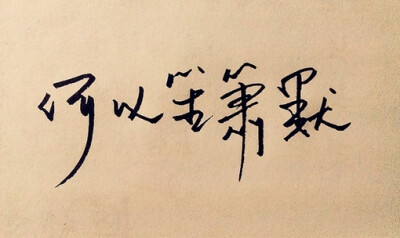 何以笙箫默